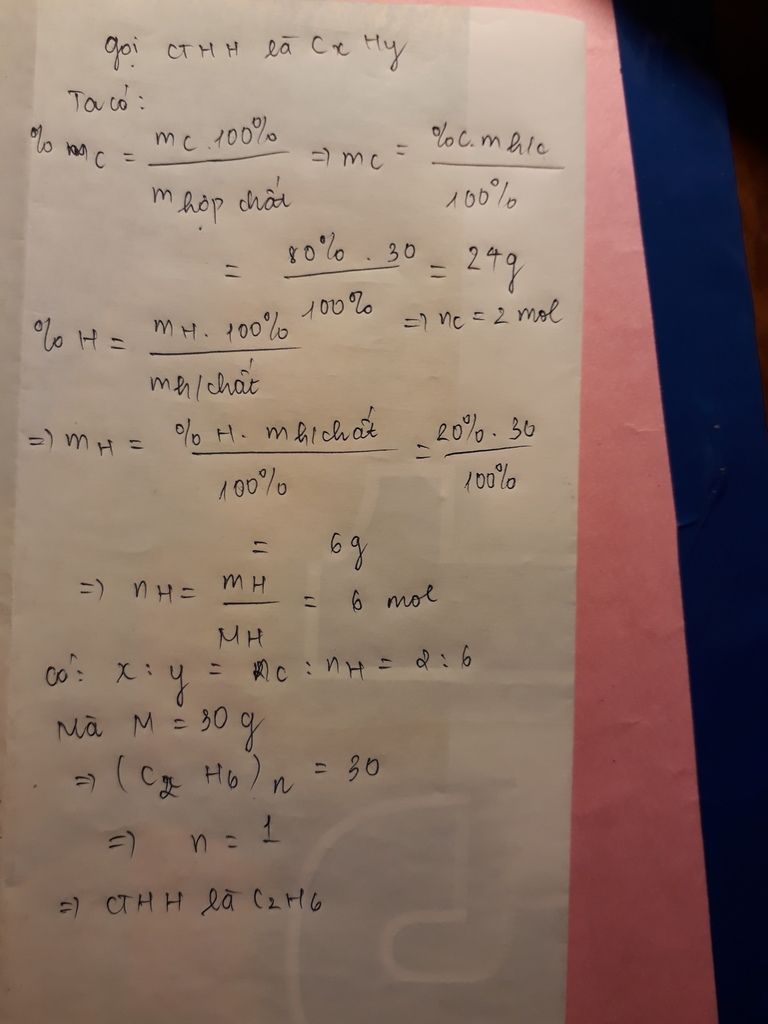 gọi CTHH là CxHy
Ta có:
% mC = mC . 100% / m hợp chất => mC = %C. m h/c / 100%
= 80% . 30 / 100% = 24g
=> nC = 2 mol
% H = mH. 100% / m h/chất
=> mH = % H. m h/chất / 100% = 20% . 30 / 100%
= 6g
=> nH = mH / MH = 6 mol
có: x : y = nC : nH = 2 : 6
Mà M = 30 g
=> (C2 H6)n = 30
=> n = 1
=> CTHH là C2H6